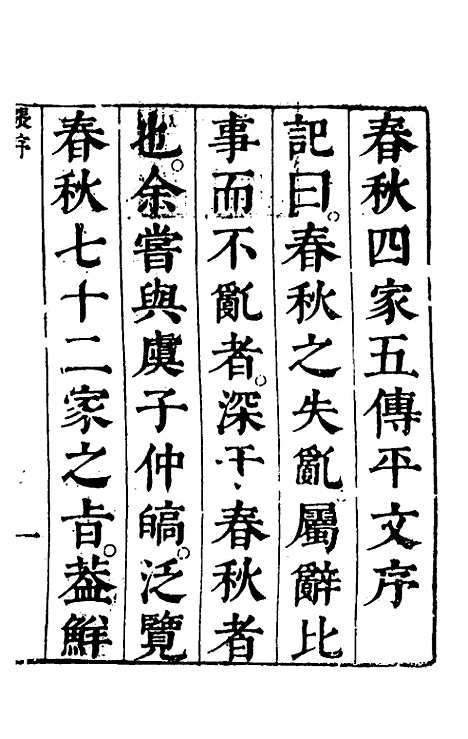 春秋四家五傳平文序
記曰。春秋之失亂。屬辭比
事而不亂者。深于春秋者
也。余嘗與虞子仲皜。泛覽
春秋七十二家之旨。葢鮮
張序
一